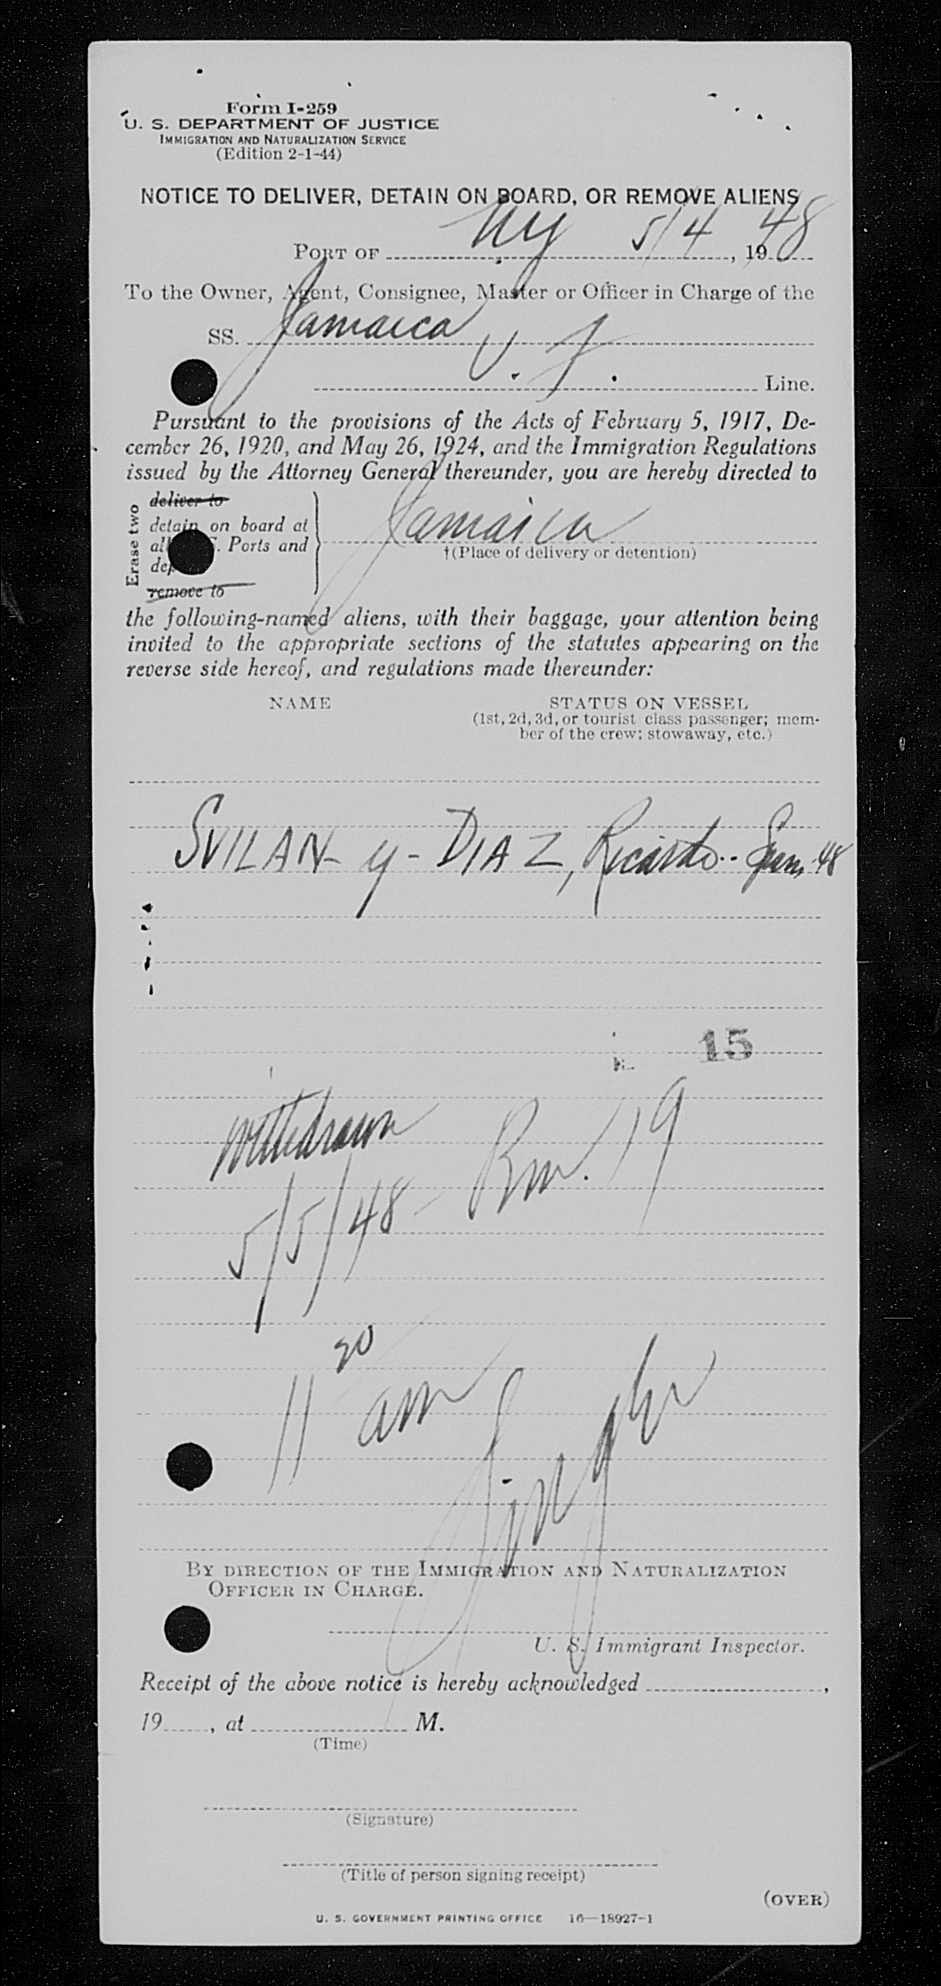 Form I-259
U. S. DEPARTMENT OF JUSTICE
IMMIGRATION AND NATURALIZATION SERVICE
(Edition 2-1-44)
NOTICE TO DELIVER, DETAIN ON BOARD, OR REMOVE ALIENS
PORT OF NY 5/4, 1948
To the Owner, Agent, Consignee, Master or Officer in Charge of the
SS. Jamaica
U. F. Line.
Pursuant to the provisions of the Acts of February 5, 1917, De-
cember 26, 1920, and May 26, 1924, and the Immigration Regulations
issued by the Attorney General thereunder, you are hereby directed to
Erase two
deliver to
detain on board at
Ports and
remove to
Jamaica
†(Place of delivery or detention)
the following-named aliens, with their baggage, your attention being
invited to the appropriate sections of the statutes appearing on the
reverse side hereof, and regulations made thereunder:
NAME STATUS ON VESSEL
(1st, 2d, 3d, or tourist class passenger; mem-
ber of the crew; stowaway, etc.)
SVILAN - y - DIAZ, Ricardo -- 48
15
Withdrawn
5/5/48 - Rm. 19
11 20 am
BY DIRECTION OF THE IMMIGRATION AND NATURALIZATION
OFFICER IN CHARGE.
U. S. Immigrant Inspector.
Receipt of the above notice is hereby acknowledged ,
19 , at M.
(Time)
(Signature)
(Title of person signing receipt)
(OVER)
U. S. GOVERNMENT PRINTING OFFICE 16—18927-1